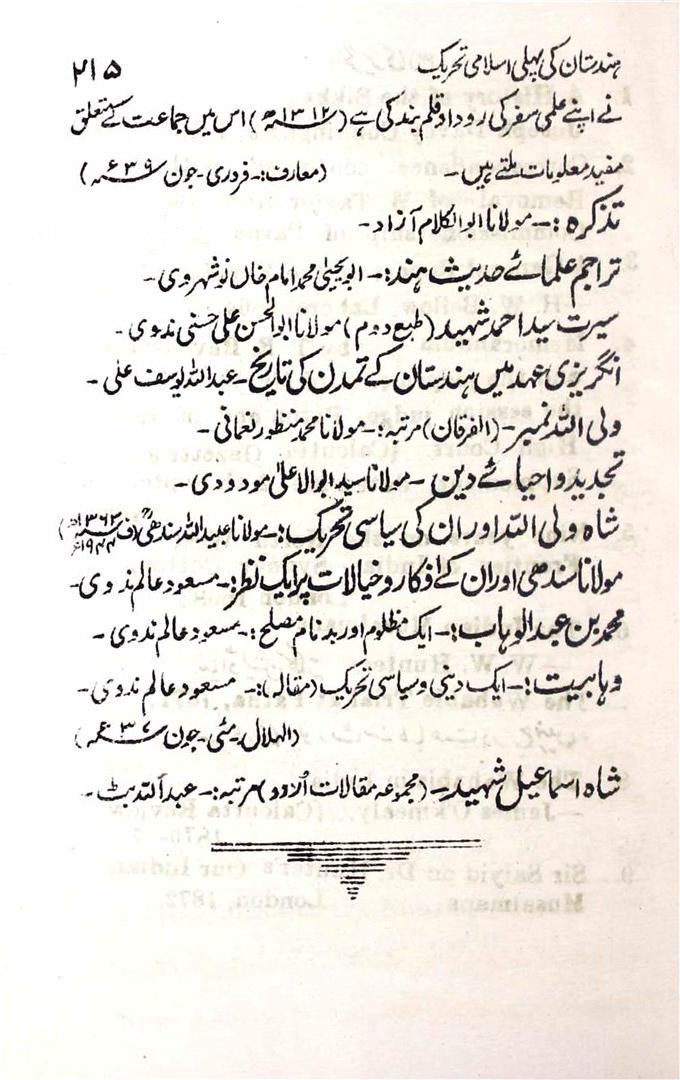 ہندستان کی پہلی اسلامی تحریک ۲۱۵
نے اپنے علمی سفر کی روداد قلم بند کی ہے (۱۳۱۲ھ) اس میں جماعت کے متعلق
مفید معلومات ملتے ہیں۔ (معارف:۔ فروری۔ جون ۳۹ء)
تذکرہ:۔ مولانا ابوالکلام آزاد۔
تراجم علمائے حدیث ہند:۔ ابویحییٰ محمد امام خاں نوشہروی۔
سیرت سید احمد شہید (طبع دوم) مولانا ابوالحسن علی حسنی ندوی۔
انگریزی عہد میں ہندستان کے تمدن کی تاریخ۔ عبداللہ یوسف علی۔
ولی اللہ نمبر۔ (الفرقان) مرتبہ:۔ مولانا محمد منظور نعمانی۔
تجدید و احیائے دین۔ مولانا سید ابوالاعلیٰ مودودی۔
شاہ ولی اللہ اور ان کی سیاسی تحریک:۔ مولانا عبید اللہ سندھیؒ (ف ۱۳۶۳ھ ۱۹۴۴ء)
مولانا سندھی اور ان کے افکار و خیالات پر ایک نظر:۔ مسعود عالم ندوی۔
محمد بن عبدالوہاب:۔ ایک مظلوم اور بدنام مصلح:۔ مسعود عالم ندوی۔
وہابیت:۔ ایک دینی و سیاسی تحریک (مقالہ):۔ مسعود عالم ندوی۔
(الہلال۔ مئی۔ جون ۳۷ء)
شاہ اسماعیل شہید۔ (مجموعہ مقالات اُردو) مرتبہ:۔ عبداللہ بٹ۔